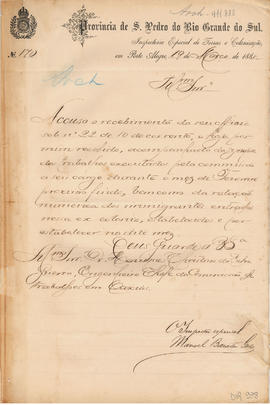 Arch
Provincia de S. Pedro do Rio Grande do Sul.
Inspectoria Especial de Terras e Colonisação,
Nº 170
em Porto Alegre, 19 de Março de 1885
Arch
Illmo Snr.
Accuso o recebimento do seu officio
sob nº 22 de 10 do corrente, e hoje por
mim recebido, acompanhado do
de trabalhos executados pela commissão
a seu cargo durante o mez de Fevereiro
proximo findo, bem como da relação
numerica dos immigrantes entrados
nessa ex colonia, estabelecidos e por
estabelecer no dito mez.
Deus Guarde a V.Sª
Illmo Snr. Dr.
Guerra, Engenheiro Chefe da Commissão de
Trabalhos em Caxias.
O Inspector especial
Manoel